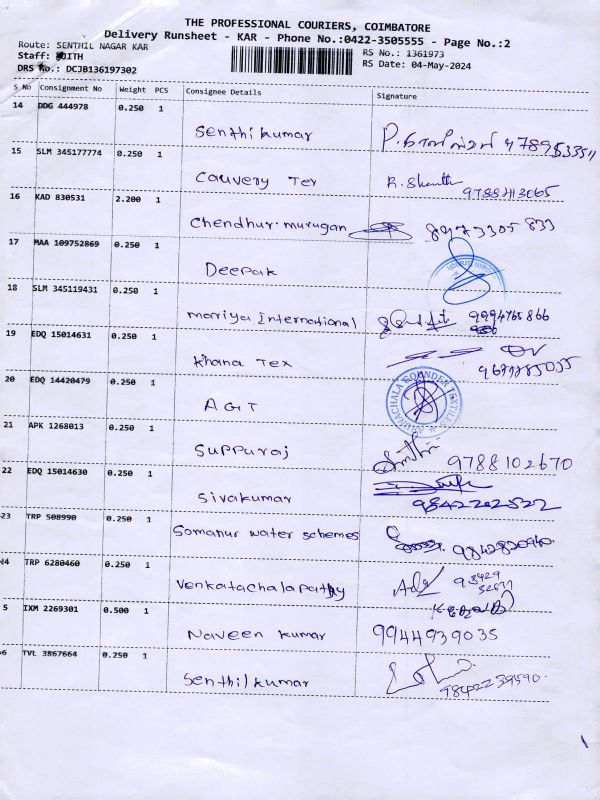 THE PROFESSIONAL COURIERS, COIMBATORE
Delivery Runsheet - KAR - Phone No.:0422-3505555 - Page No.:2
Route: SENTHIL NAGAR KAR
RS No.: 1361973
Staff: JITH
RS Date: 04-May-2024
DRS No.: DCJB136197302
S No Consignment No Weight PCS Consignee Details Signature
14 DDG 444978 0.250 1
Senthikumar
15 SLM 345177774 0.250 1
Cauvery Tex R. Shanth
16 KAD 830531 2.200 1
Chendhur.murugan 8973305 833
17 MAA 109752869 0.250 1
Deepak
18 SLM 345119431 0.250 1
Mariya International 9994765866
19 EDQ 15014631 0.250 1
Khana Tex
20 EDQ 14420479 0.250 1
AGT
ARUNACHALA GOUNDER TEXTILE
21 APK 1268013 0.250 1
Suppuraj 9788102670
22 EDQ 15014630 0.250 1
Sivakumar 9842202522
23 TRP 508990 0.250 1
Somanur water schemes 9842820940.
24 TRP 6280460 0.250 1
Venkatachalapathy
5 IXM 2269301 0.500 1
Naveen kumar 9944939035
6 TVL 3867664 0.250 1
Senthilkumar 9842239590.